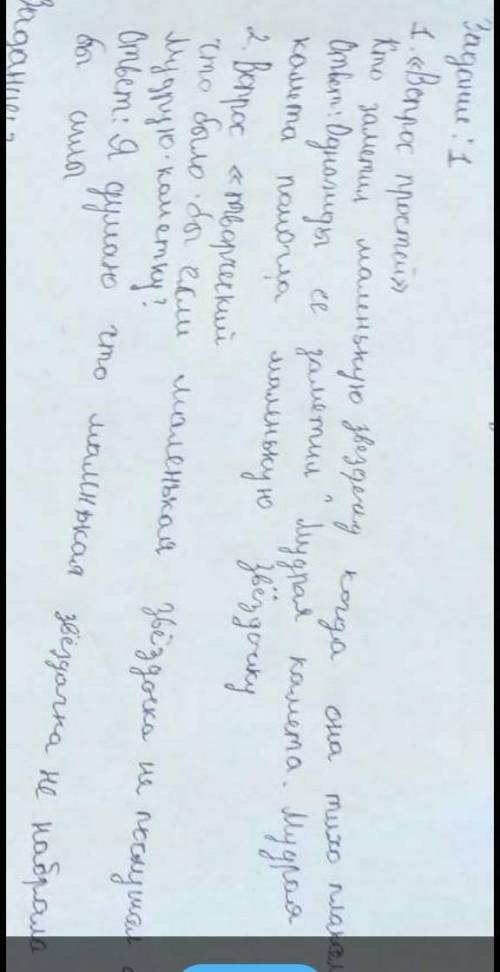 Задание: 1
1. «Вопрос простой»
Кто заметил маленькую звездочку когда она тихо плакал
Ответ: Однажды ее заметил Мудрая камета. Мудрая
камета памогла маленькую звёздочку
2. Вопрос «творческий
что было бы если маленькая звёздочка не послушал
Мудрую каметку?
Ответ: Я думаю что маленькая звёздачка не набрала
бы силы
Задание: